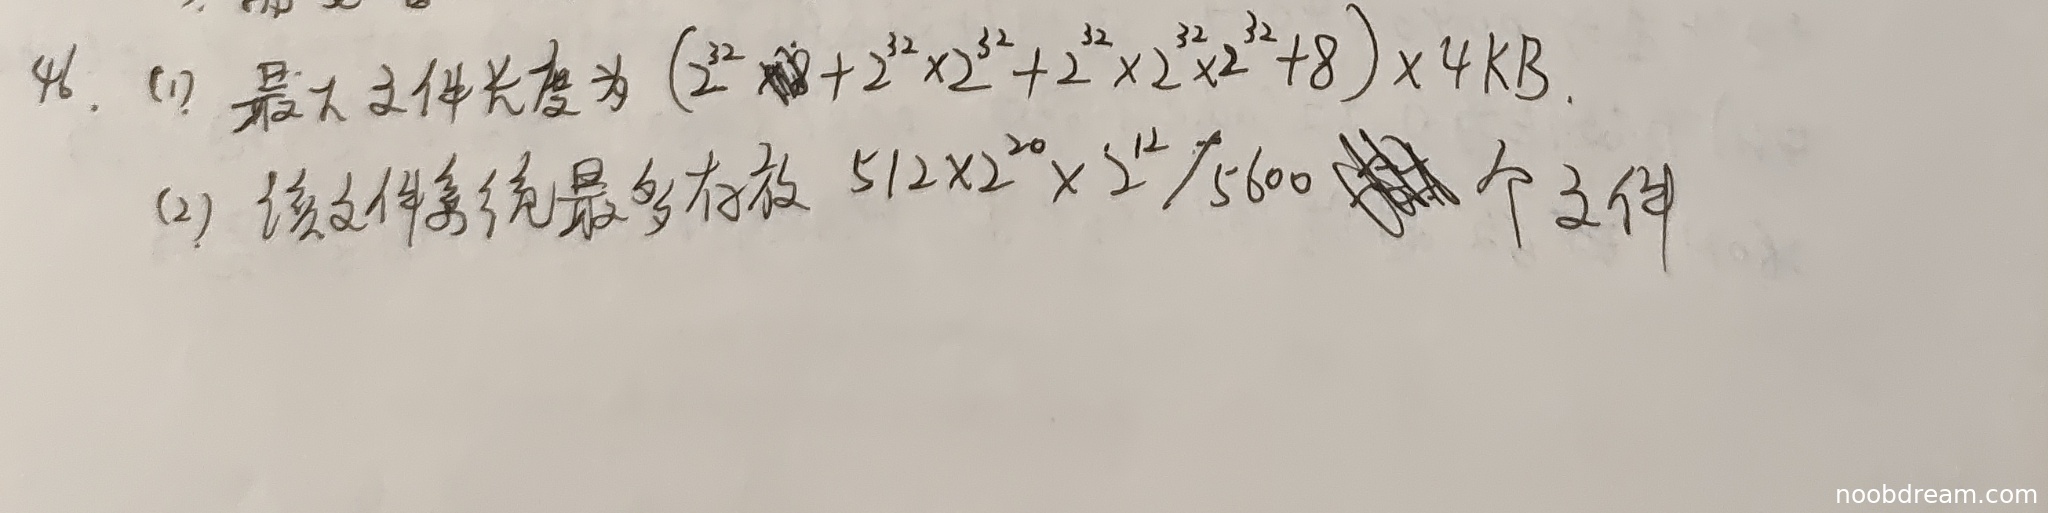 46. (1) 最大文件长度为 (2^32 + 2^32×2^32 + 2^32×2^32×2^32 + 8) × 4KB.
(2) 该文件系统最多存放 512×2^20×2^12/5600 个文件
noobdream.com